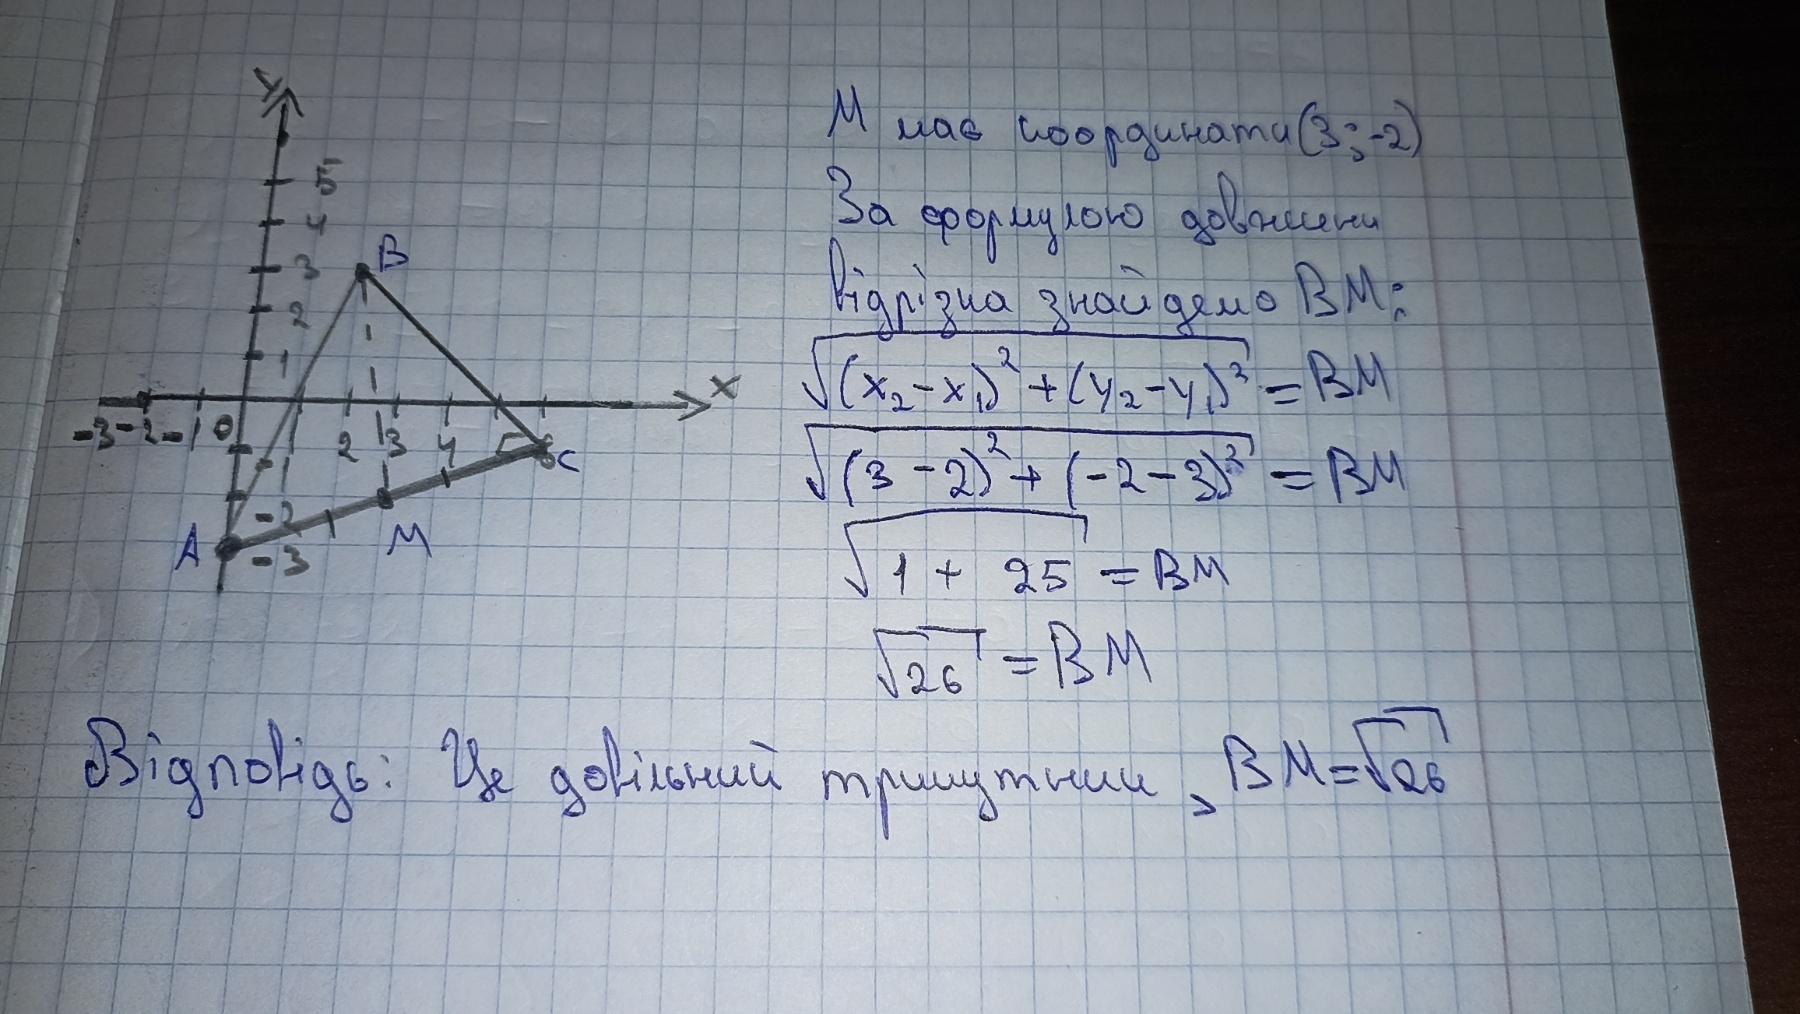 y
5
4
3 B
2
1
x
-3 -2 -1 0 1 2 3 4 5 C
-2
A -3 M
M має координати (3; -2)
За формулою довжини
відрізка знайдемо BM:
√(x₂-x₁)² + (y₂-y₁)² = BM
√(3-2)² + (-2-3)² = BM
√1 + 25 = BM
√26 = BM
Відповідь: Це довільний трикутник, BM=√26